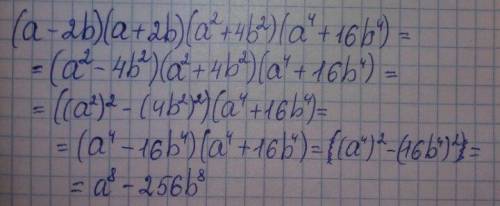 (a-2b)(a+2b)(a²+4b²)(a⁴+16b⁴)=
=(a²-4b²)(a²+4b²)(a⁴+16b⁴)=
=((a²)²-(4b²)²)(a⁴+16b⁴)=
=(a⁴-16b⁴)(a⁴+16b⁴)=((a⁴)²-(16b⁴)²)=
=a⁸-256b⁸